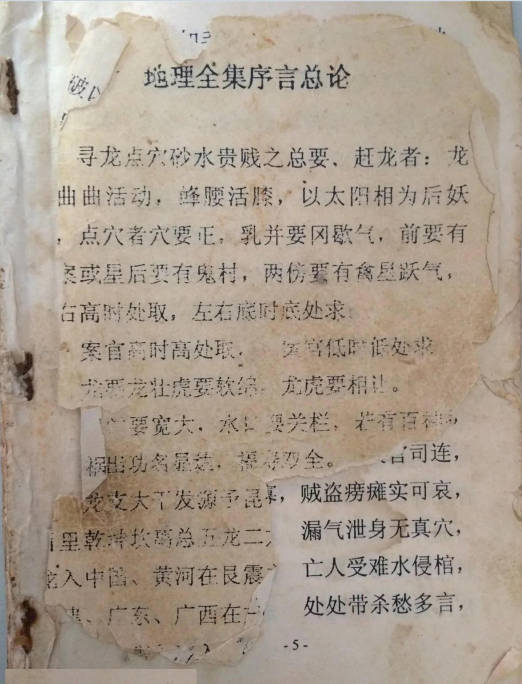 破
地理全集序言总论
寻龙点穴砂水贵贱之总要、赶龙者：龙
曲曲活动，蜂腰活膝，以太阳相为后妖
，点穴者穴要正，乳并要冈歇气，前要有
案或星后要有鬼村，两傍要有禽星跃气，
右高时处取，左右底时底处求：
案官高时高处取， 官低时低处求
龙要龙壮虎要软绵，龙虎要相让。
要宽大，水口要关栏，若有百神
祸出功名显 ，福寿双全。 官司连，
龙支大干发源于昆 ，贼盗痨瘫实可哀，
里乾坤坎离总五龙二 漏气泄身无真穴，
龙入中国、黄河在艮震 亡人受难水侵棺，
、广东、广西在 处处带杀愁多言，
-5-